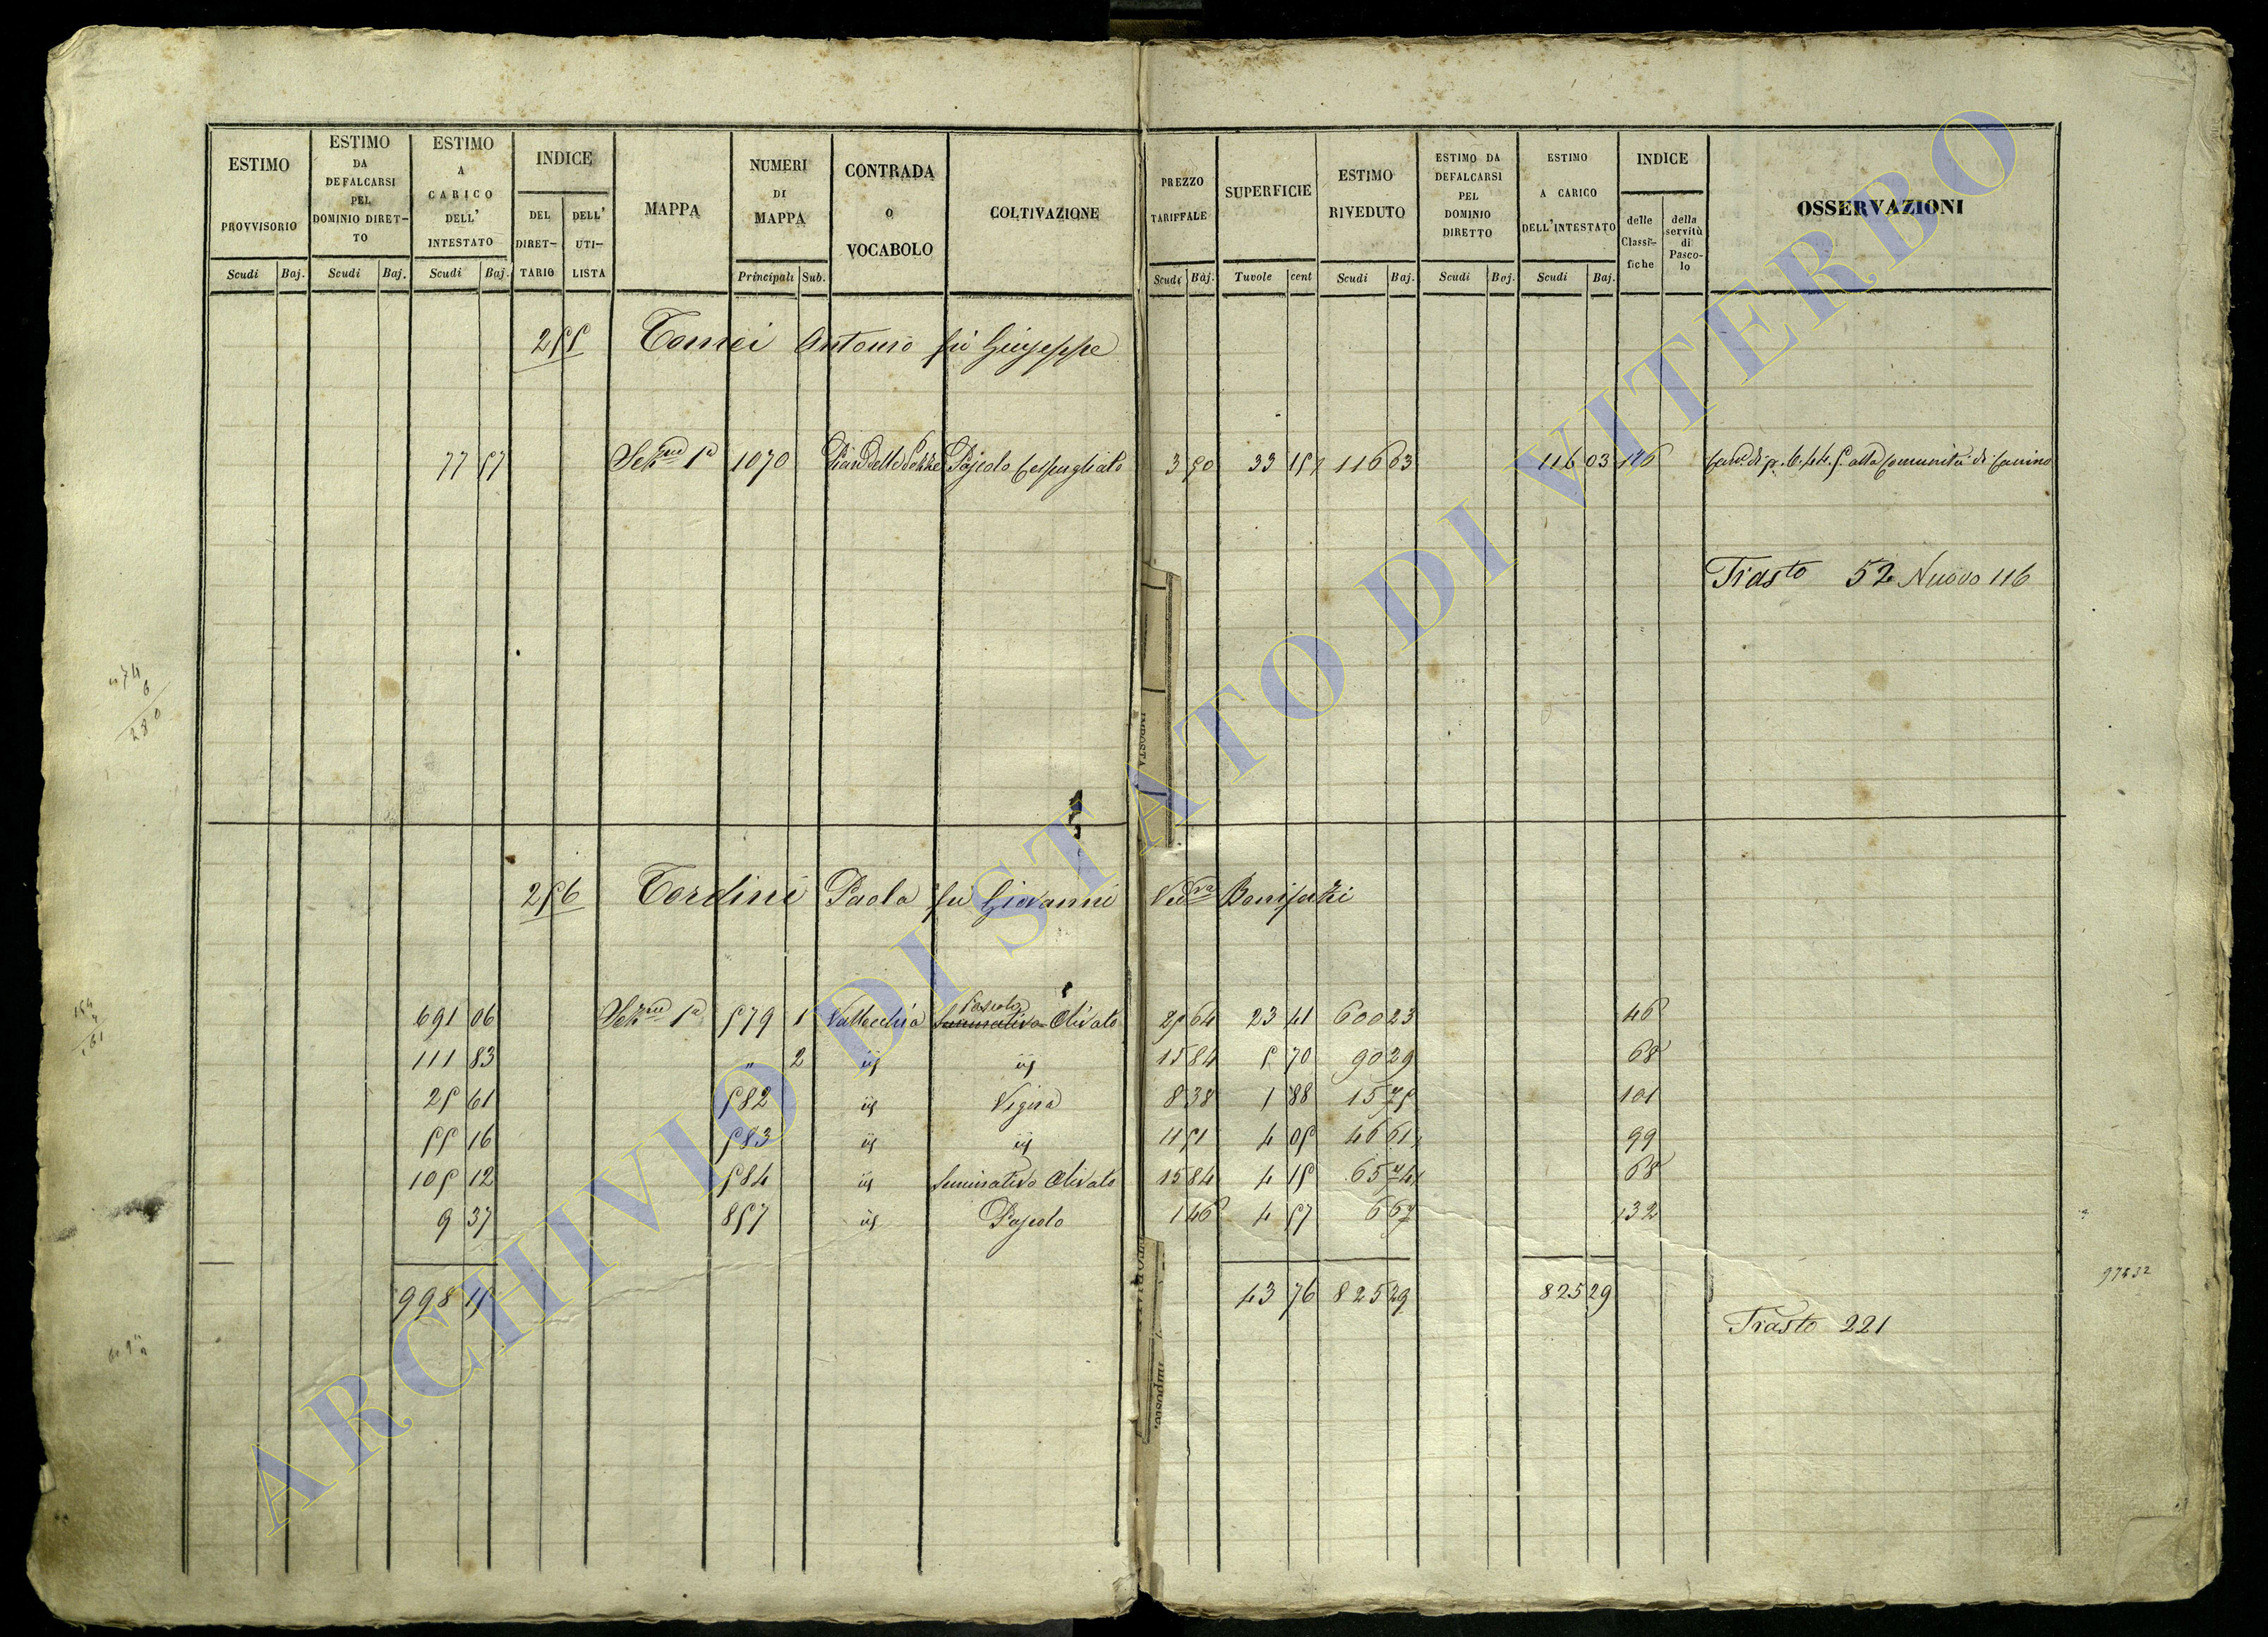 ESTIMO PROVVISORIO
ESTIMO DA DEFALCARSI PEL DOMINIO DIRET-TO
ESTIMO A CARICO DELL' INTESTATO
INDICE
DEL DIRET-TARIO
DELL' UTI-LISTA
MAPPA
NUMERI DI MAPPA
CONTRADA O VOCABOLO
COLTIVAZIONE
PREZZO TARIFFALE
SUPERFICIE
ESTIMO RIVEDUTO
ESTIMO DA DEFALCARSI PEL DOMINIO DIRETTO
ESTIMO A CARICO DELL'INTESTATO
INDICE
delle Classi-fiche
della servitù di Pasco-lo
OSSERVAZIONI
Scudi Baj. Scudi Baj. Scudi Baj. Principali Sub. Scudi Baj. Tavole cent Scudi Baj. Scudi Baj. Scudi Baj.
255 Tomei Antonio fu Giuseppe
77 57 Sezne 1a 1070 Pian delle Pascolo Cespugliato 3 50 33 15 116 03 116 03 126 alla Comunità di Canino
Triasto 52 Nuovo 116
256 Tordini Paola fu Giovanni Vedva Bonifazi
Pascolo
691 06 Sezne 1a 579 1 Vallecchia Seminativo Olivato 25 64 23 41 600 23 46
111 83 " 2 iis iis 15 84 5 70 90 29 68
25 61 582 iis Vigna 8 38 1 88 15 75 101
55 16 583 iis iis 11 51 4 05 46 61 99
105 12 584 iis Seminativo Olivato 15 84 4 15 65 74 68
9 37 857 iis Pascolo 1 46 4 57 6 67 132
998 15 43 76 825 29 825 29
Triasto 221
97532
ARCHIVIO DI STATO DI VITERBO